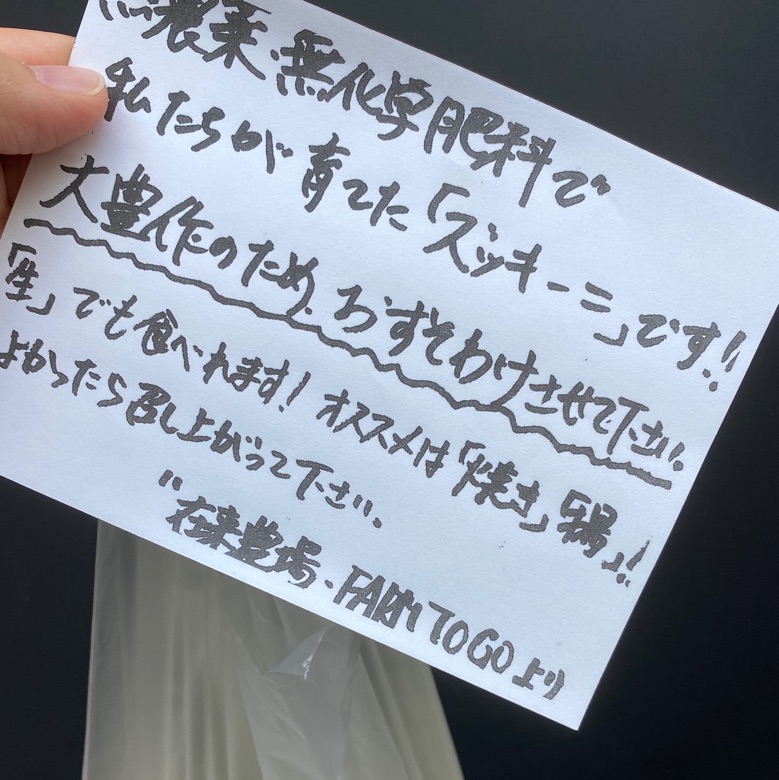 無農薬・無化学肥料で
私たちが育てた「ズッキーニ」です!!
大豊作のため、おすそわけさせて下さい。
「生」でも食べれます! オススメは「焼き」「鍋」!!
よかったら召し上がって下さい。
〃在来農場・FARM TO GO より